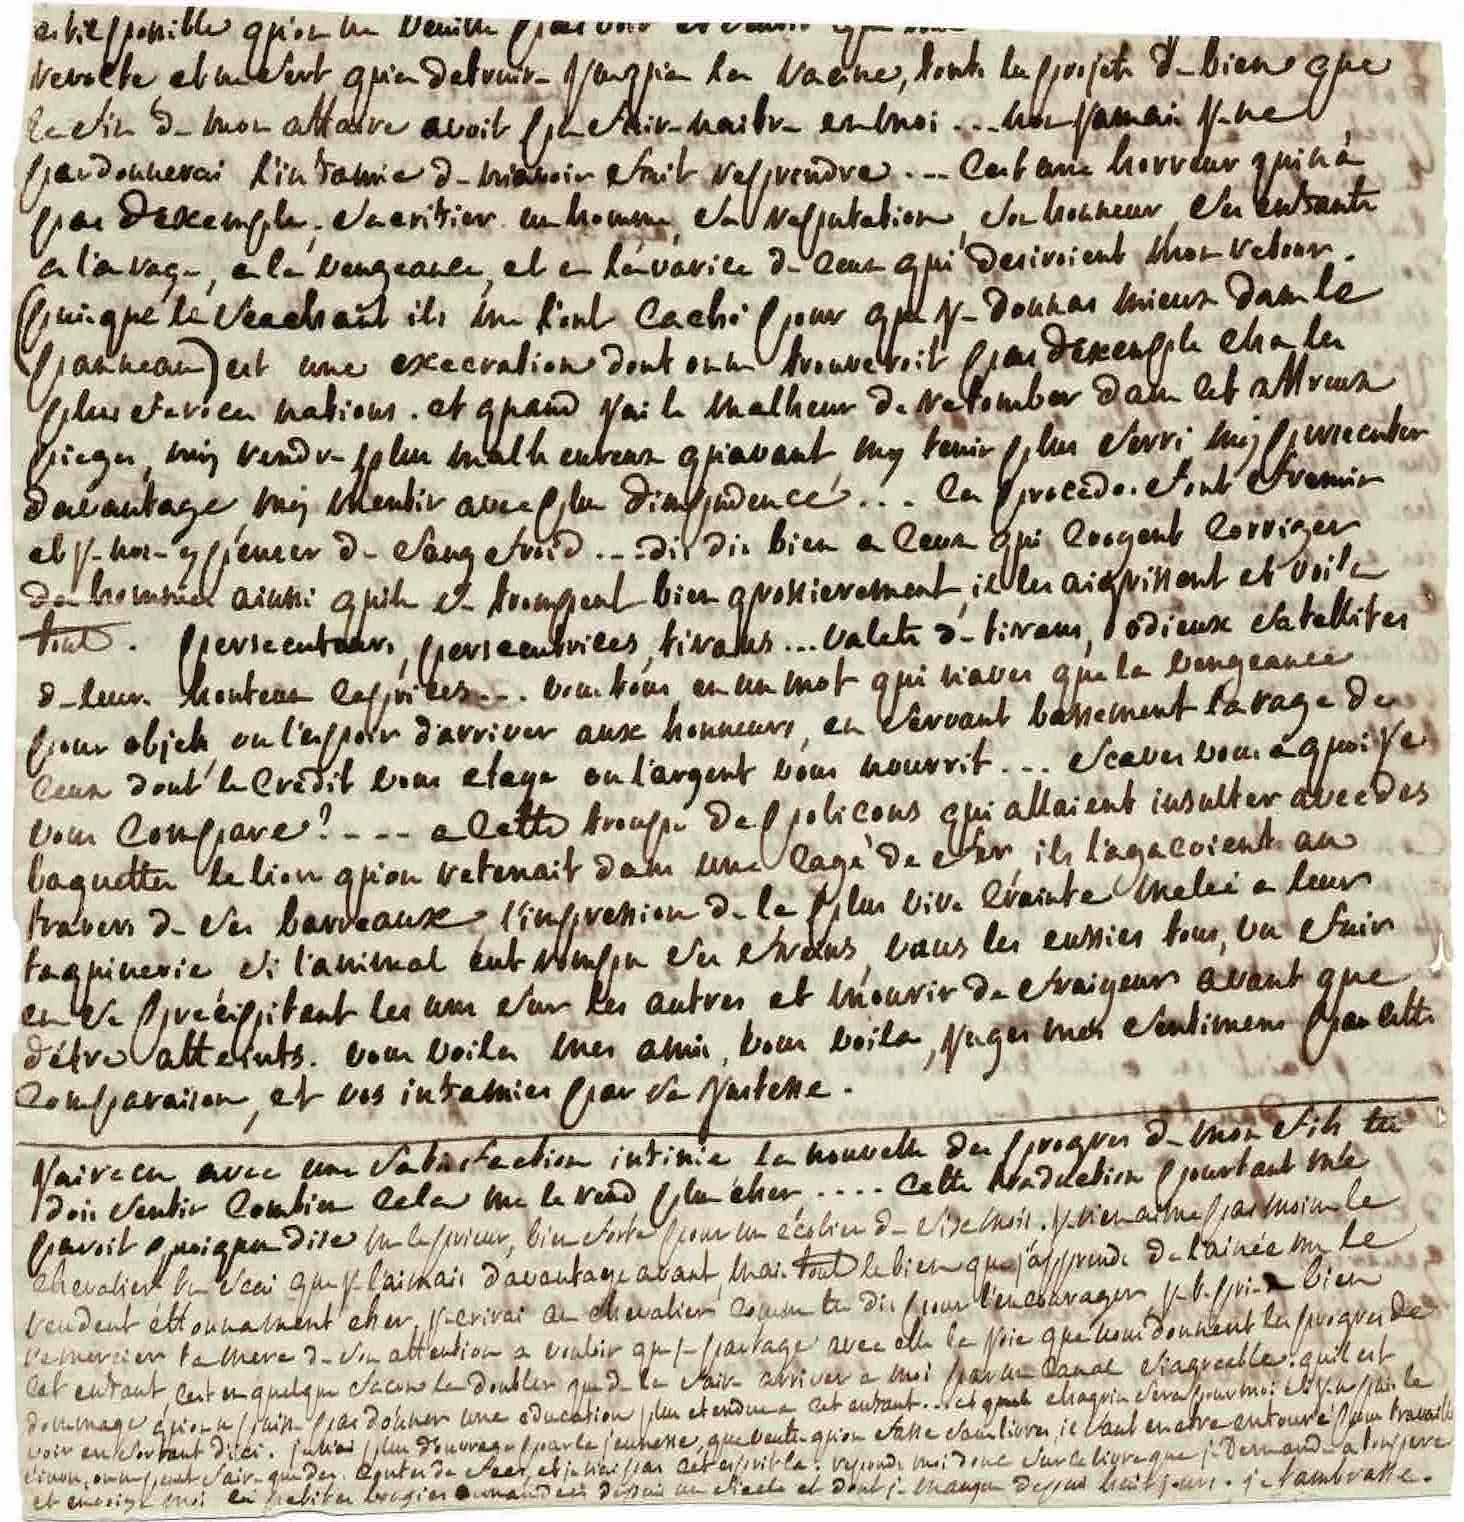 est il possible qu'on ne veuille pas voir et sentir que
revolte et ne sert qu'a detruire jusqu'a la racine, touts les projets de bien que
la fin de mon affaire avoit pu faire naitre en moi ... non jamais je ne
pardonnerai l'infamie de m'avoir fait reprendre ... C'est une horreur qui n'a
pas d'exemple, sacrifier un homme, sa reputation, son honneur, ses enfants
a la rage, a la vengeance, et a l'avarice de ceux qui desiroient mon retour.
(puisque le scachant ils me l'ont caché pour que je donnas mieux dans le
panneau) est une execration dont on ne trouveroit pas d'exemple ches les
plus feroces nations. et quand j'ai le malheur de retomber dans cet affreux
pieges, m'y rendre plus malheureux qu'avant, m'y tenir plus serré, m'y persecuter
davantage, m'y mentir avec plus d'impudence ... Ces procedes font fremir
et je n'ose y penser de sang froid ... dis dis bien a ceux qui croyent corriger
des hommes ainsi qu'ils se trompent bien grossierement, ils les aigrissent et voila
tout. persecuteurs, persecutrices, tirans ... valets de tirans, odieux satellites
de leurs honteux caprices ... vous tous en un mot qui n'aves que la vengeance
pour objets, ou l'espoir d'arriver aux honneurs, en servant bassement la rage de
ceux dont le credit vous etaye ou l'argent vous nourrit ... scaves vous a quoi je
vous compare? .... a cette troupe de policons qui allaient insulter avec des
baguettes le lion qu'on retenait dans une cage de fer, ils l'agacoient au
travers de ses barreaux, l'impression de la plus vive crainte melée a leur
taquinerie, si l'animal eut rompu ses freins, vous les eussies tous, vu fuir
en se precipitant les uns sur les autres et mourir de fraiyeur avant que
d'etre atteints. vous voila mes amis, vous voila, juges mes sentimens par cette
comparaison, et vos infamies par sa justesse.
j'ai recu avec une satisfaction infinie la nouvelle des progres de mon fils tu
dois sentir combien cela me le rend plus cher .... cette traduction pourtant me
paroit quoiqu'en dise mr le prieur, bien forte pour un écolier de six mois. je n'en aime pas moins le
chevalier, que je l'aimais davantage avant, mais tout le bien que j'apprends de l'ainée me le
rendent éttonnament cher, j'ecrirai au chevalier comme tu dis pour l'encourager, je te prie bien
remercier ta mere de son attention a vouloir que je partage avec elle la joie que nous donnent les progres de
cet enfant, c'est en quelque facon la doubler que de la faire arriver a moi par un canal si agreable. qu'il est
dommage qu'on ne puisse pas donner une education plus etendue a cet enfant ... et quel chagrin sera pour moi si je ne puis le
voir en sortant d'ici. plus d'ouvrage par la jeunesse, que veut on qu'on fasse sans livres, il faut en etre entouré pour travailler
sinon, on ne peut faire que des contes de fees, et je n'ai pas cet esprit la. reponds moi donc sur le livre que je demande a ton pere
et envoie moi les petites bougies demandées depuis un siecle et dont je manque depuis huit jours. je t'ambrasse.